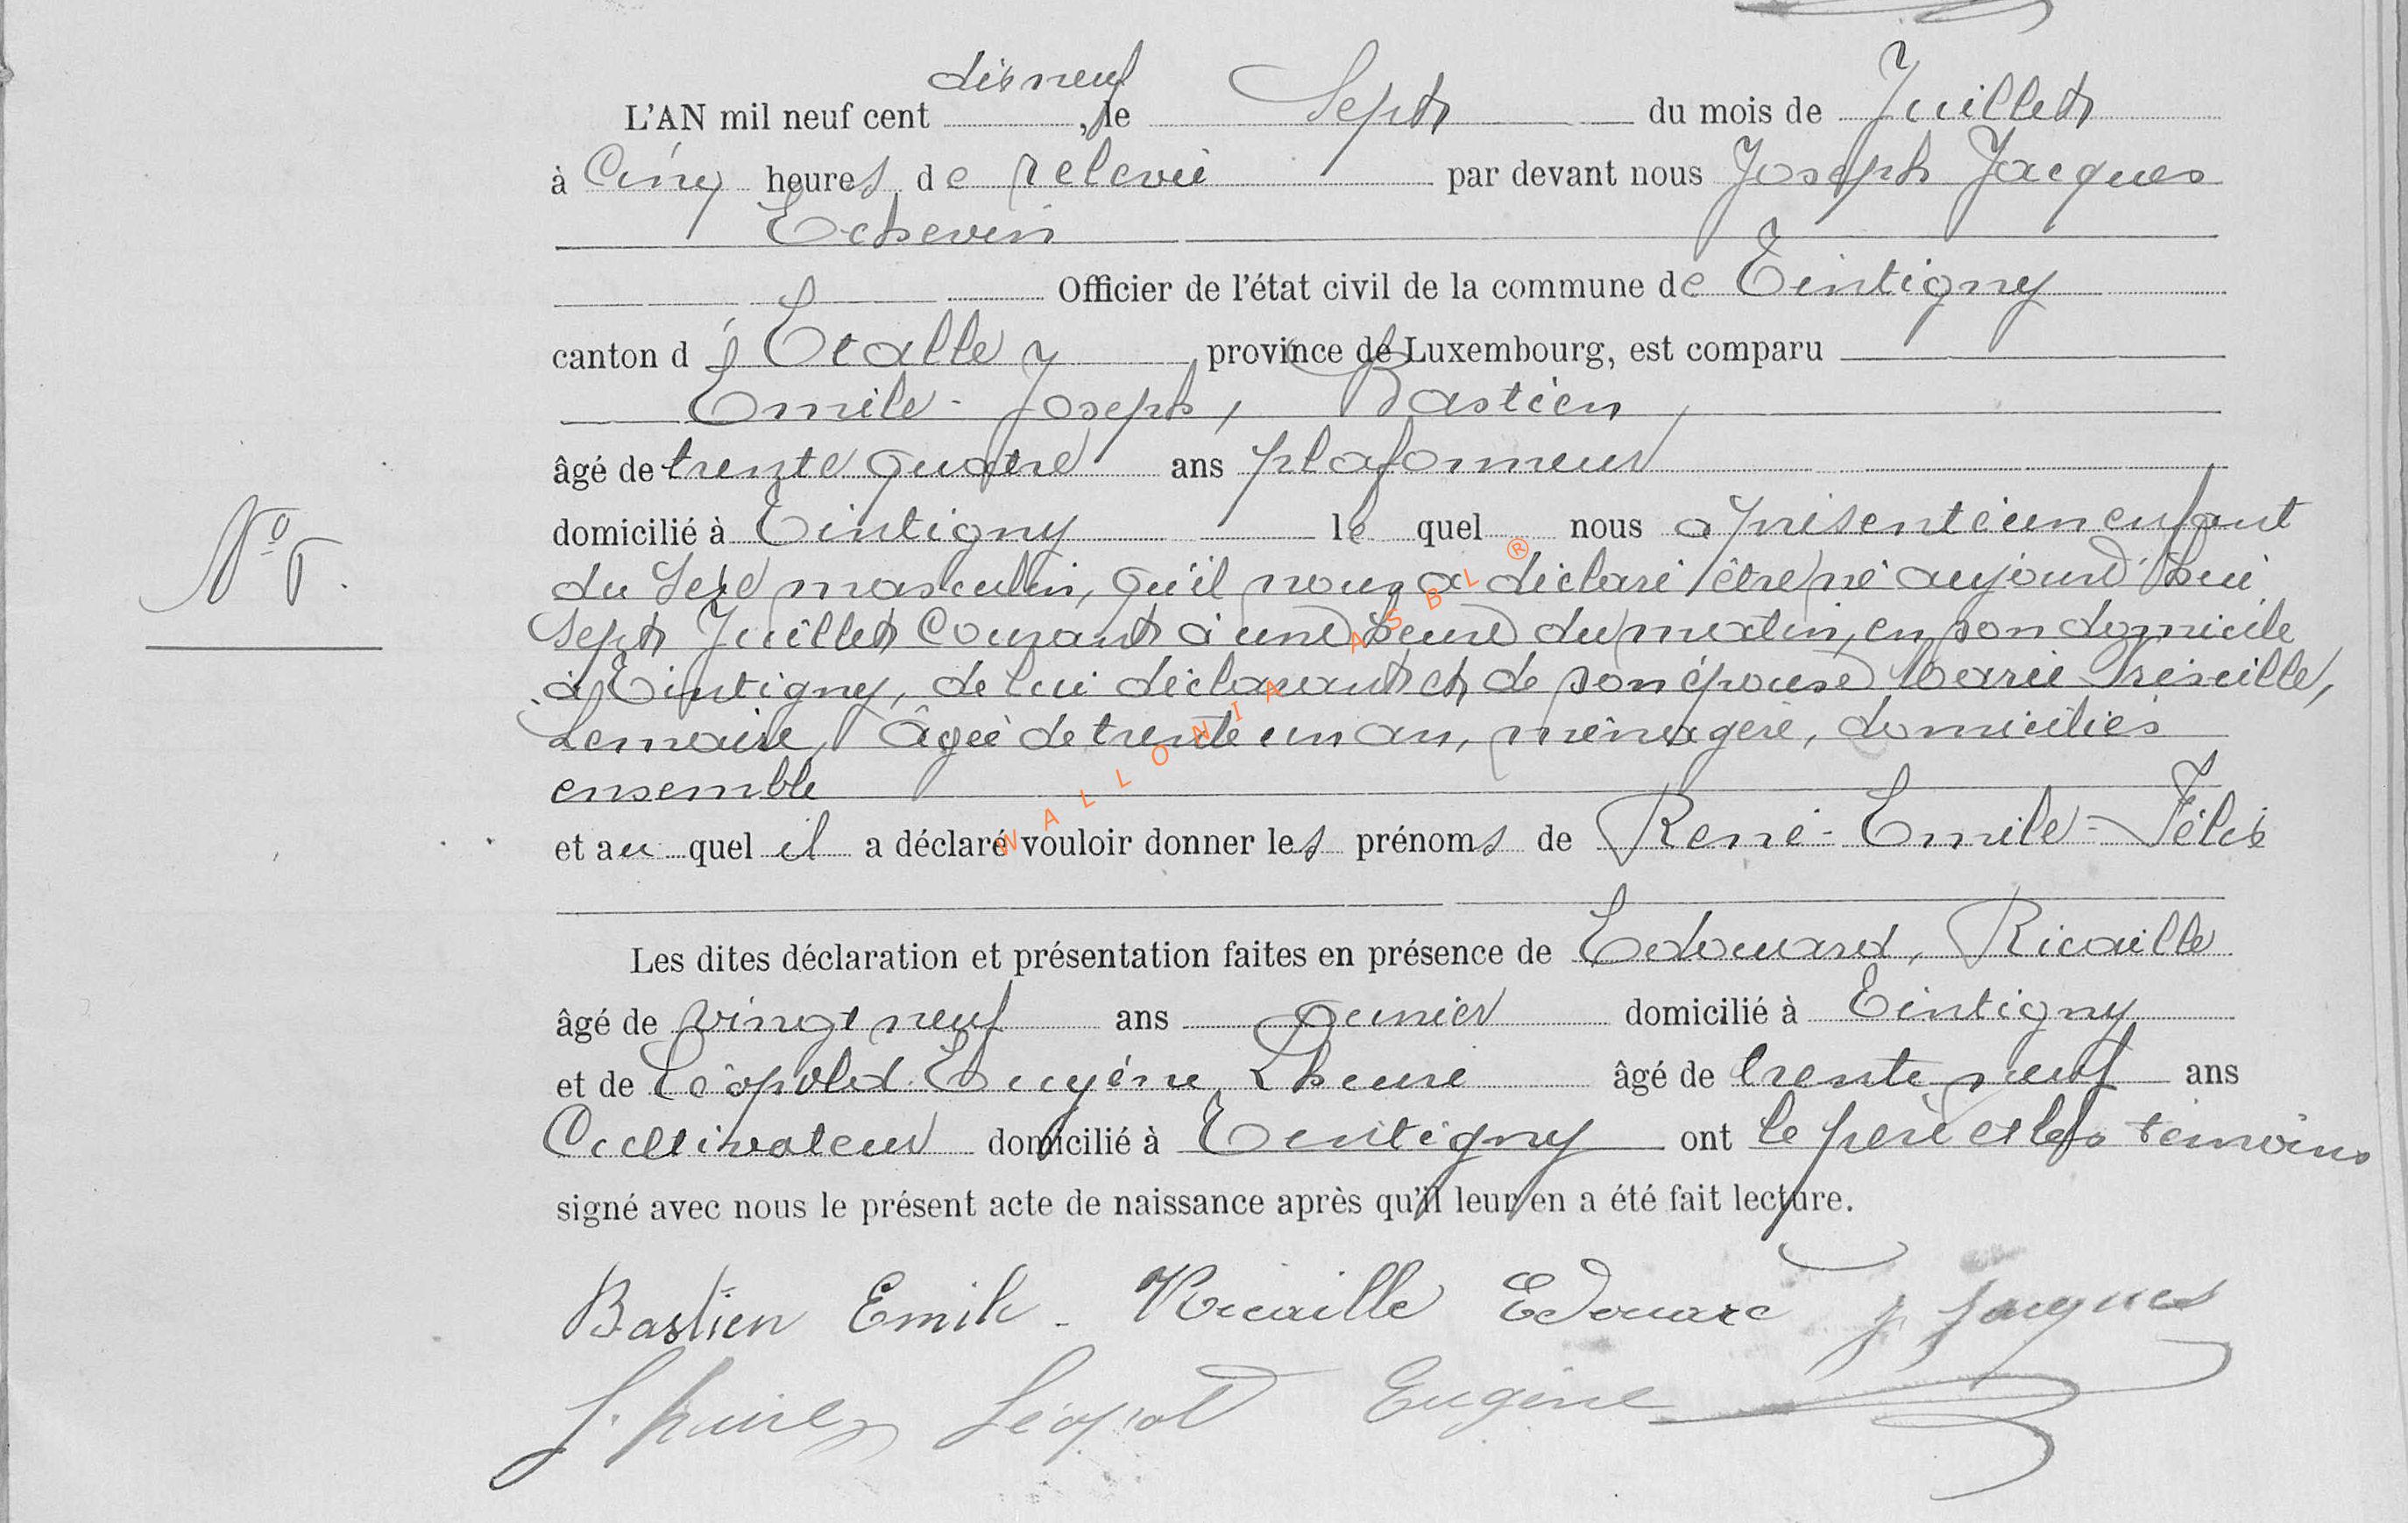 disneuf
L'AN mil neuf cent , le Sept du mois de Juillet
à Cinq heures de relevée par devant nous Joseph Jacques
Echevin
Officier de l'état civil de la commune de Tintigny
canton d'Etalle province de Luxembourg, est comparu
Emile-Joseph, Bastien,
âgé de trente quatre ans plafonneur
domicilié à Tintigny le quel nous a présenté un enfant
du sexe masculin, qu'il nous a déclaré être né aujourd'hui
Sept Juillet courant à une heure du matin, en son domicile
à Tintigny, de lui déclarant et de son épouse Marie
Lemaire, âgée de trente un an, ménagère, domiciliés
ensemble
et au quel il a déclaré vouloir donner les prénoms de René-Emile-Félix
Les dites déclaration et présentation faites en présence de Edouard, Ricaille
âgé de vingt neuf ans domicilié à Tintigny
et de Léopold Eugène Lhuire âgé de trente neuf ans
Cultivateur domicilié à Tintigny ont le père et les témoins
signé avec nous le présent acte de naissance après qu'il leur en a été fait lecture.
N°
Bastien Emile - Ricaille Edouard J. Jacques
Lhuire Léopold Eugène
WALLONIA ASBL ®